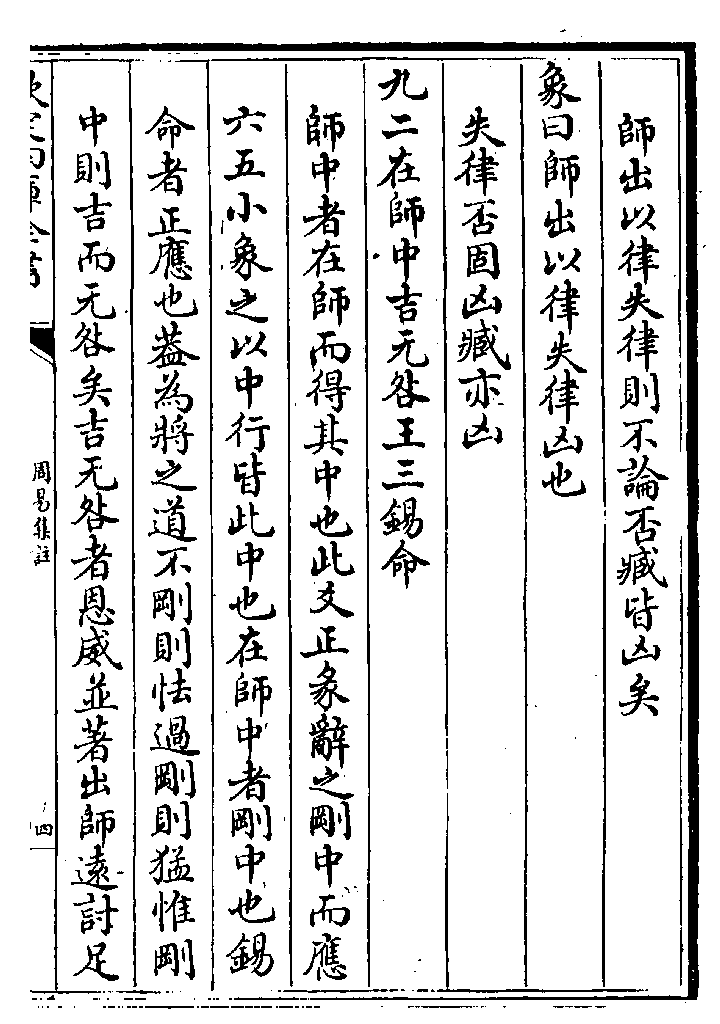 師出以律失律則不論否臧皆凶矣
象曰師出以律失律凶也
失律否固凶臧亦凶
九二在師中吉无咎王三錫命
師中者在師而得其中也此爻正彖辭之剛中而應
六五小象之以中行皆此中也在師中者剛中也錫
命者正應也葢為將之道不剛則怯過剛則猛惟剛
中則吉而无咎矣吉无咎者恩威並著出師遠討足
欽定四庫全書
周易集註
四